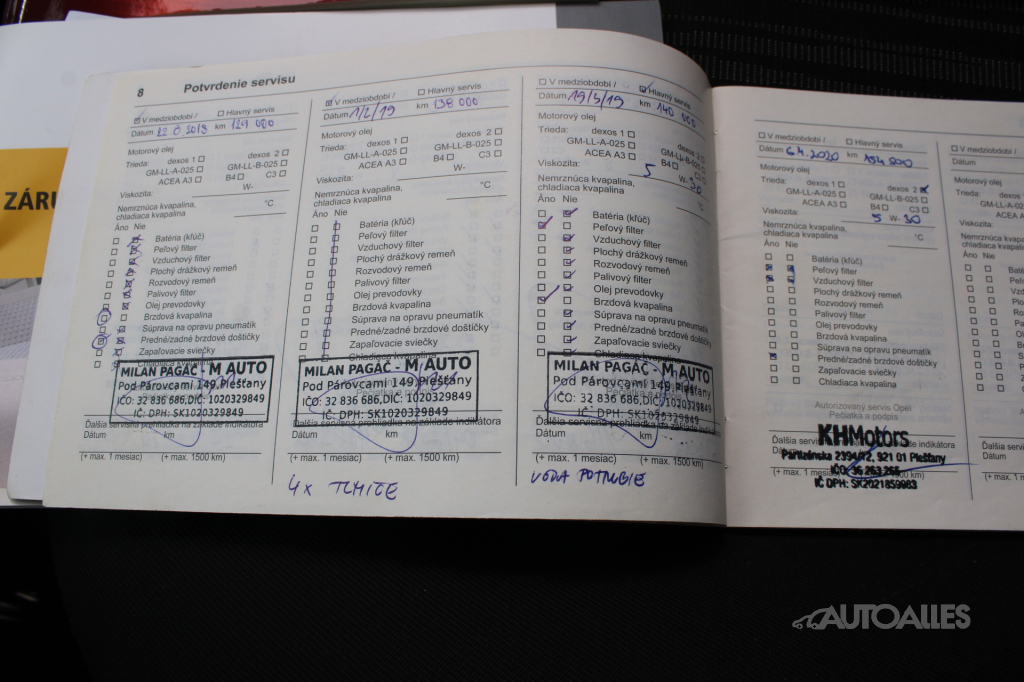 ZÁRU
8 Potvrdenie servisu
V medziobdobí / Hlavný servis
Dátum km 129 000
Motorový olej
Trieda: dexos 1 dexos 2
GM-LL-A-025 GM-LL-B-025
ACEA A3 B4 C3
Viskozita: W-
Nemrznúca kvapalina,
chladiaca kvapalina °C
Áno Nie
Batéria (kľúč)
Peľový filter
Vzduchový filter
Plochý drážkový remeň
Rozvodový remeň
Palivový filter
Olej prevodovky
Brzdová kvapalina
Súprava na opravu pneumatík
Predné/zadné brzdové doštičky
Zapaľovacie sviečky
MILAN PAGÁČ - M AUTO
Pod Párovcami 149, Piešťany
IČO: 32 836 686, DIČ: 1020329849
IČ: DPH: SK1020329849
Ďalšia servisná prehliadka na základe indikátora
Dátum km
(+ max. 1 mesiac) (+ max. 1500 km)
V medziobdobí / Hlavný servis
Dátum 1/2/19 km 138 000
Motorový olej
Trieda: dexos 1 dexos 2
GM-LL-A-025 GM-LL-B-025
ACEA A3 B4 C3
Viskozita: W-
Nemrznúca kvapalina,
chladiaca kvapalina °C
Áno Nie
Batéria (kľúč)
Peľový filter
Vzduchový filter
Plochý drážkový remeň
Rozvodový remeň
Palivový filter
Olej prevodovky
Brzdová kvapalina
Súprava na opravu pneumatík
Predné/zadné brzdové doštičky
Zapaľovacie sviečky
Chladiaca kvapalina
MILAN PAGÁČ - M AUTO
Pod Párovcami 149, Piešťany
IČO: 32 836 686, DIČ: 1020329849
IČ: DPH: SK1020329849
Ďalšia servisná prehliadka na základe indikátora
Dátum km
(+ max. 1 mesiac) (+ max. 1500 km)
4x TLMIČE
V medziobdobí / Hlavný servis
Dátum 19/5/19 km 140 000
Motorový olej
Trieda: dexos 1 dexos 2
GM-LL-A-025 GM-LL-B-025
ACEA A3 B4 C3
Viskozita: 5 W- 30
Nemrznúca kvapalina,
chladiaca kvapalina °C
Áno Nie
Batéria (kľúč)
Peľový filter
Vzduchový filter
Plochý drážkový remeň
Rozvodový remeň
Palivový filter
Olej prevodovky
Brzdová kvapalina
Súprava na opravu pneumatík
Predné/zadné brzdové doštičky
Zapaľovacie sviečky
Chladiaca kvapalina
MILAN PAGÁČ - M AUTO
Pod Párovcami 149, Piešťany
IČO: 32 836 686, DIČ: 1020329849
IČ: DPH: SK1020329849
Ďalšia servisná prehliadka na základe indikátora
Dátum km
(+ max. 1 mesiac) (+ max. 1500 km)
V medziobdobí / Hlavný servis
Dátum 6.4.2020 km
Motorový olej
Trieda: dexos 1 dexos 2
GM-LL-A-025 GM-LL-B-025
ACEA A3 B4 C3
Viskozita: 5 W- 30
Nemrznúca kvapalina,
chladiaca kvapalina °C
Áno Nie
Batéria (kľúč)
Peľový filter
Vzduchový filter
Plochý drážkový remeň
Rozvodový remeň
Palivový filter
Olej prevodovky
Brzdová kvapalina
Súprava na opravu pneumatík
Predné/zadné brzdové doštičky
Zapaľovacie sviečky
Chladiaca kvapalina
Autorizovaný servis Opel
Pečiatka a podpis
KHMotors
Partizánska 2394/12, 921 01 Piešťany
IČO: 36 263 265
IČ DPH: SK2021859983
(+ max. 1 mesiac) (+ max. 1500 km)
V medziobdobí
Dátum
Motorový olej
Trieda: dexos 1
GM-LL-A-025
ACEA A3
Viskozita:
Nemrznúca kvapalina
chladiaca kvapalina
Áno Nie
(+ max. 1 mesiac)
AUTOALLES